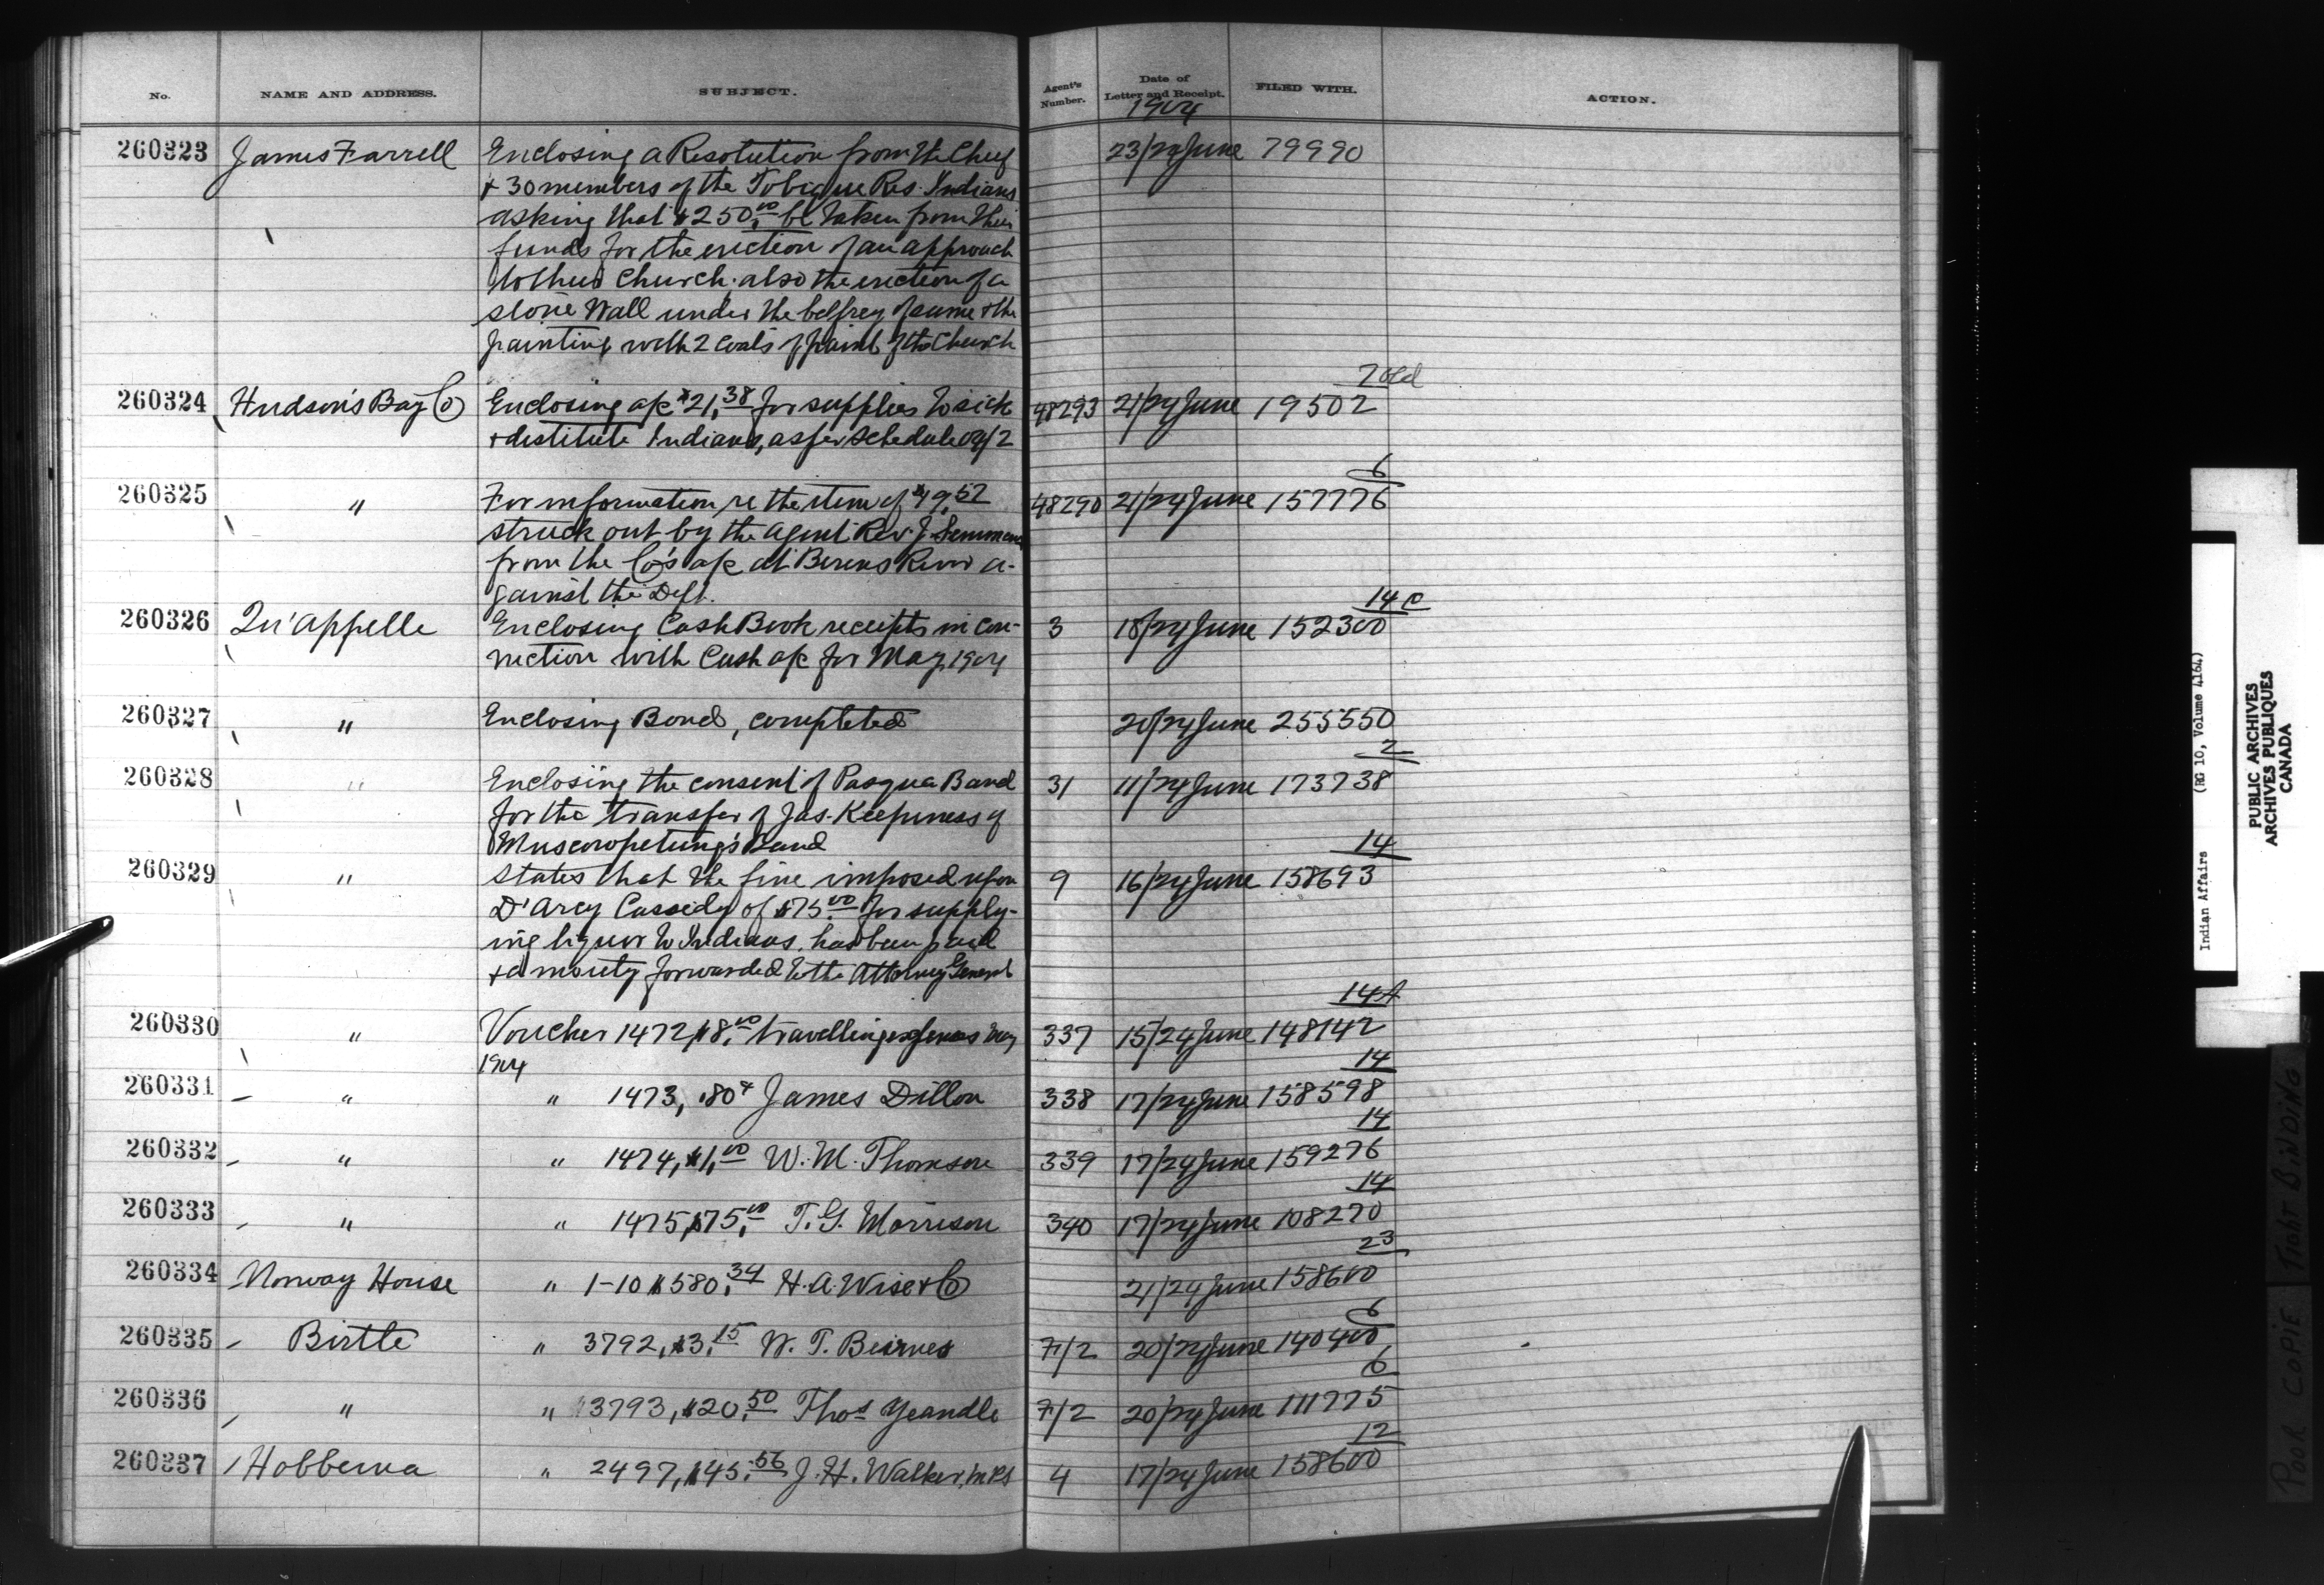 No. NAME AND ADDRESS. SUBJECT. Agent's Number. Date of Letter and Receipt. FILED WITH. ACTION.
1904
260323 James Farrell Enclosing a Resolution from the Chief 23/24 June 79990
+ 30 members of the Tobique Res. Indians
asking that $250.00 be taken from their
funds for the erection of an approach
to their Church; also the erection of a
stone Wall under the belfrey of same & the
painting with 2 coats of paint of the Church
260324 Hudson's Bay Co Enclosing a/c $21.38 for supplies to sick 48293 21/24 June 19502
+ destitute Indians, as per schedule of/2
260325 " For information re the item of $49.52 48290 21/24 June 157776
6
struck out by the agent Rev. J. Semmens
from the Co's a/c at Berens River a-
gainst the Dept.
260326 Qu'appelle Enclosing Cash Book receipts in con- 3 18/24 June 152300
14 C
nection with Cash a/c for May, 1904
260327 " Enclosing Bond, completed 20/24 June 255550
260328 " Enclosing the consent of Pasqua Band 31 11/24 June 173738
2
for the transfer of Jas. Keepiness of
Muscowpetung's Band
260329 " States that the fine imposed upon 9 16/24 June 158693
14
D'Arcy Cassidy of $75.00 for supply-
ing liquor to Indians, has been paid
+ a moiety forwarded to the Attorney General
260330 " Voucher 1472, $8.00 travelling expenses May 337 15/24 June 148142
14A
1904
260331 " " 1473, .80¢ James Dillon 338 17/24 June 158598
14
260332 " " 1474, $1.00 W. M. Thomson 339 17/24 June 159276
14
260333 " " 1475, $75.00 T. G. Morrison 340 17/24 June 108270
14
260334 Norway House " 1-10 $580.34 H. A. Wise & Co 21/24 June 158600
23
260335 Birtle " 3792, $3.15 W. T. Beirnes F/2 20/24 June 140400
6
260336 " " 3793, $20.50 Thos Yeandle F/2 20/24 June 111775
6
260337 Hobbema " 2497, $45.56 J. H. Walker, MRS 4 17/24 June 158600
12
Indian Affairs (RG 10, Volume 4164)
PUBLIC ARCHIVES
ARCHIVES PUBLIQUES
CANADA
POOR COPIE TIGHT BINDING